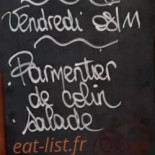 Vendredi 08/11
Parmentier
de colin
salade
eat-list.fr